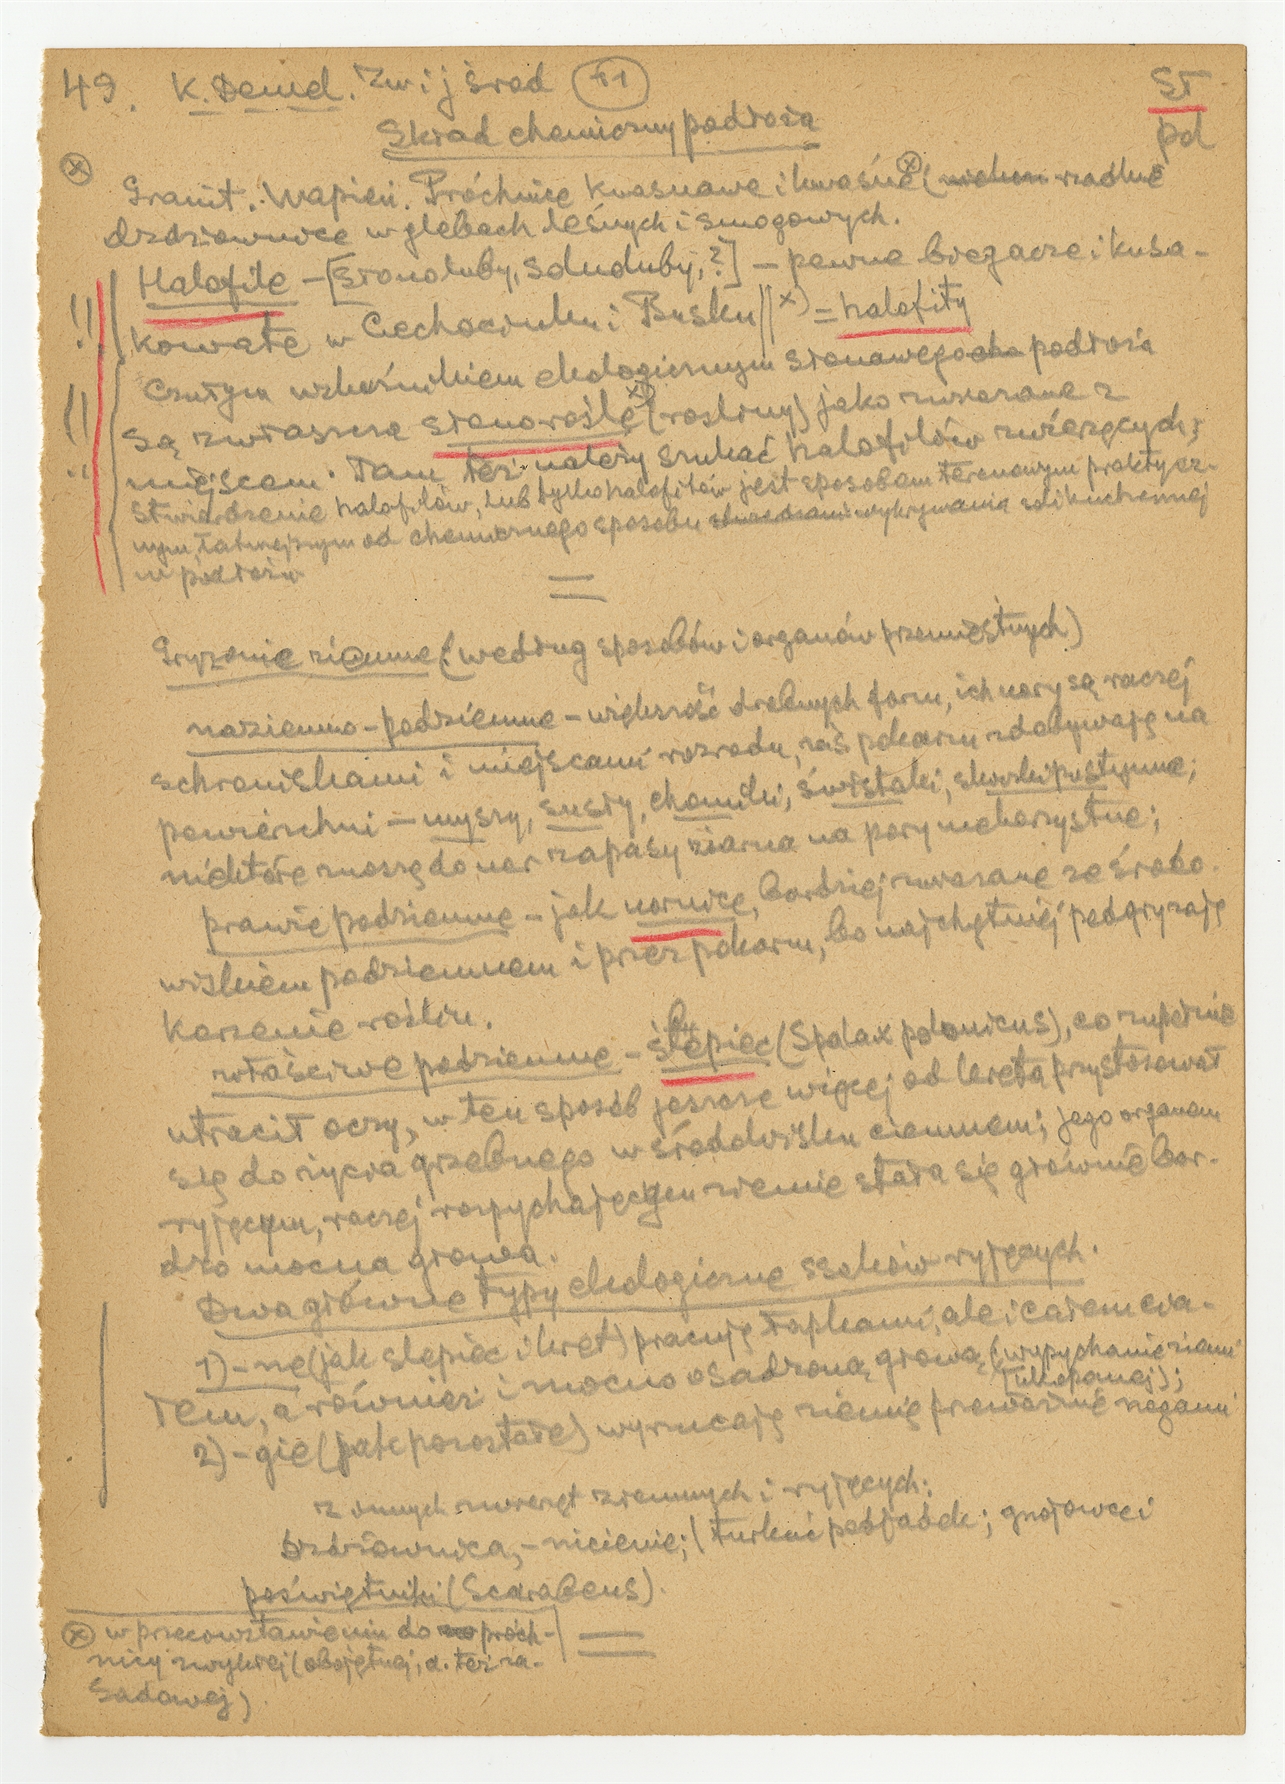 49. K. Demel. Zw i j środ 71
ST
Skład chemiczny podłoża
pd
Granit. Wapień. Próchnice kwaśnawe i kwaśne (x) (rzadkie
dżdżownice w glebach leśnych i smogowych.
Halofile – [słonoluby, soluduby, ?] – pewne biegacze i kusa-
kowate w Ciechocinku i Busku || x) = halofity
Czułym wskaźnikiem ekologicznym słonawego podłoża
są zwłaszcza słonorośle x) (rośliny) jako związane z
miejscem. Tam też należy szukać halofilów zwierzęcych;
stwierdzenie halofilów, lub tylko halofitów jest sposobem terenowym praktycz-
nym, łatwiejszym od chemicznego sposobu wykrywania soli kuchennej
w podłożu
=
Gryzonie ziemne (według sposobów i organów przemieślnych)
naziemno-podziemne – większość drobnych form, ich nory są raczej
schroniskami i miejscami rozrodu, zaś pokarm zdobywają na
powierzchni – myszy, susły, chomiki, świstaki, skoczki pustynne;
niektóre znoszą do nor zapasy ziarna na pory niekorzystne;
prawie podziemne – jak nornice, bardziej związane ze środo-
wiskiem podziemnem i przez pokarm, bo najchętniej podgryzają
korzenie roślin.
właściwe podziemne – ślepiec (Spalax polonicus), co zupełnie
utracił oczy, w ten sposób jeszcze więcej od kreta przystosował
się do życia grzebnego w środowisku ciemnem; jego organem
ryjącym, raczej rozpychającym ziemię stała się głównie bar-
dzo mocna głowa.
Dwa główne typy ekologiczne ssaków ryjących.
1) – ne (jak slepiec i kret) pracują łapkami, ale i całem cia-
łem, a również i mocno osadzoną głową (wypychanie ziemi
wkopanej);
2) – gie (jak pozostałe) wyrzucają ziemię przeważnie nogami
z innych zwierząt ziemnych i ryjących:
Dżdżownica, – nicienie; (turkuć podjadek; gnojowce i
poświętniki (Scarabeus).
(x) w przeciwstawieniu do próch-
nicy zwykłej (obojętnej, a. też za-
sadowej)